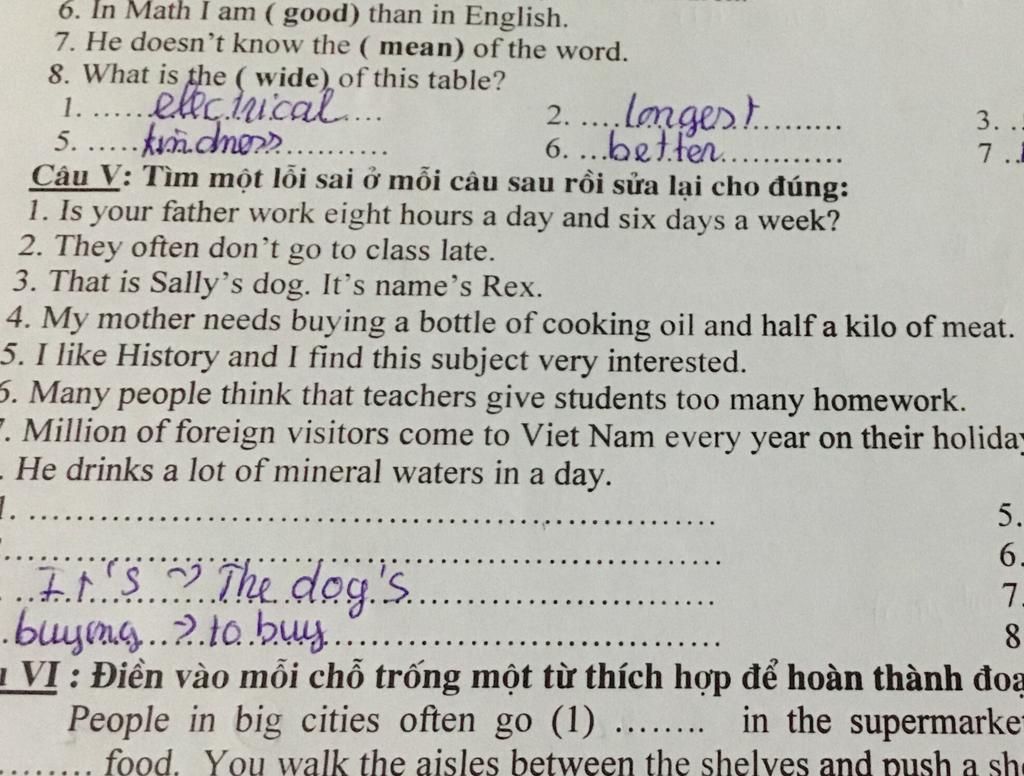 6. In Math I am ( good) than in English.
7. He doesn't know the ( mean) of the word.
8. What is the ( wide) of this table?
1. ......electrical.... 2. ....longest......... 3. ..
5. .....kindness.......... 6. ...better............ 7 ..
Câu V: Tìm một lỗi sai ở mỗi câu sau rồi sửa lại cho đúng:
1. Is your father work eight hours a day and six days a week?
2. They often don't go to class late.
3. That is Sally's dog. It's name's Rex.
4. My mother needs buying a bottle of cooking oil and half a kilo of meat.
5. I like History and I find this subject very interested.
6. Many people think that teachers give students too many homework.
7. Million of foreign visitors come to Viet Nam every year on their holiday
. He drinks a lot of mineral waters in a day.
1. ............................................................ 5.
............................................................ 6.
It's → The dog's 7.
buying → to buy 8
VI : Điền vào mỗi chỗ trống một từ thích hợp để hoàn thành đoạ
People in big cities often go (1) ........ in the supermarke
......... food. You walk the aisles between the shelves and push a sh